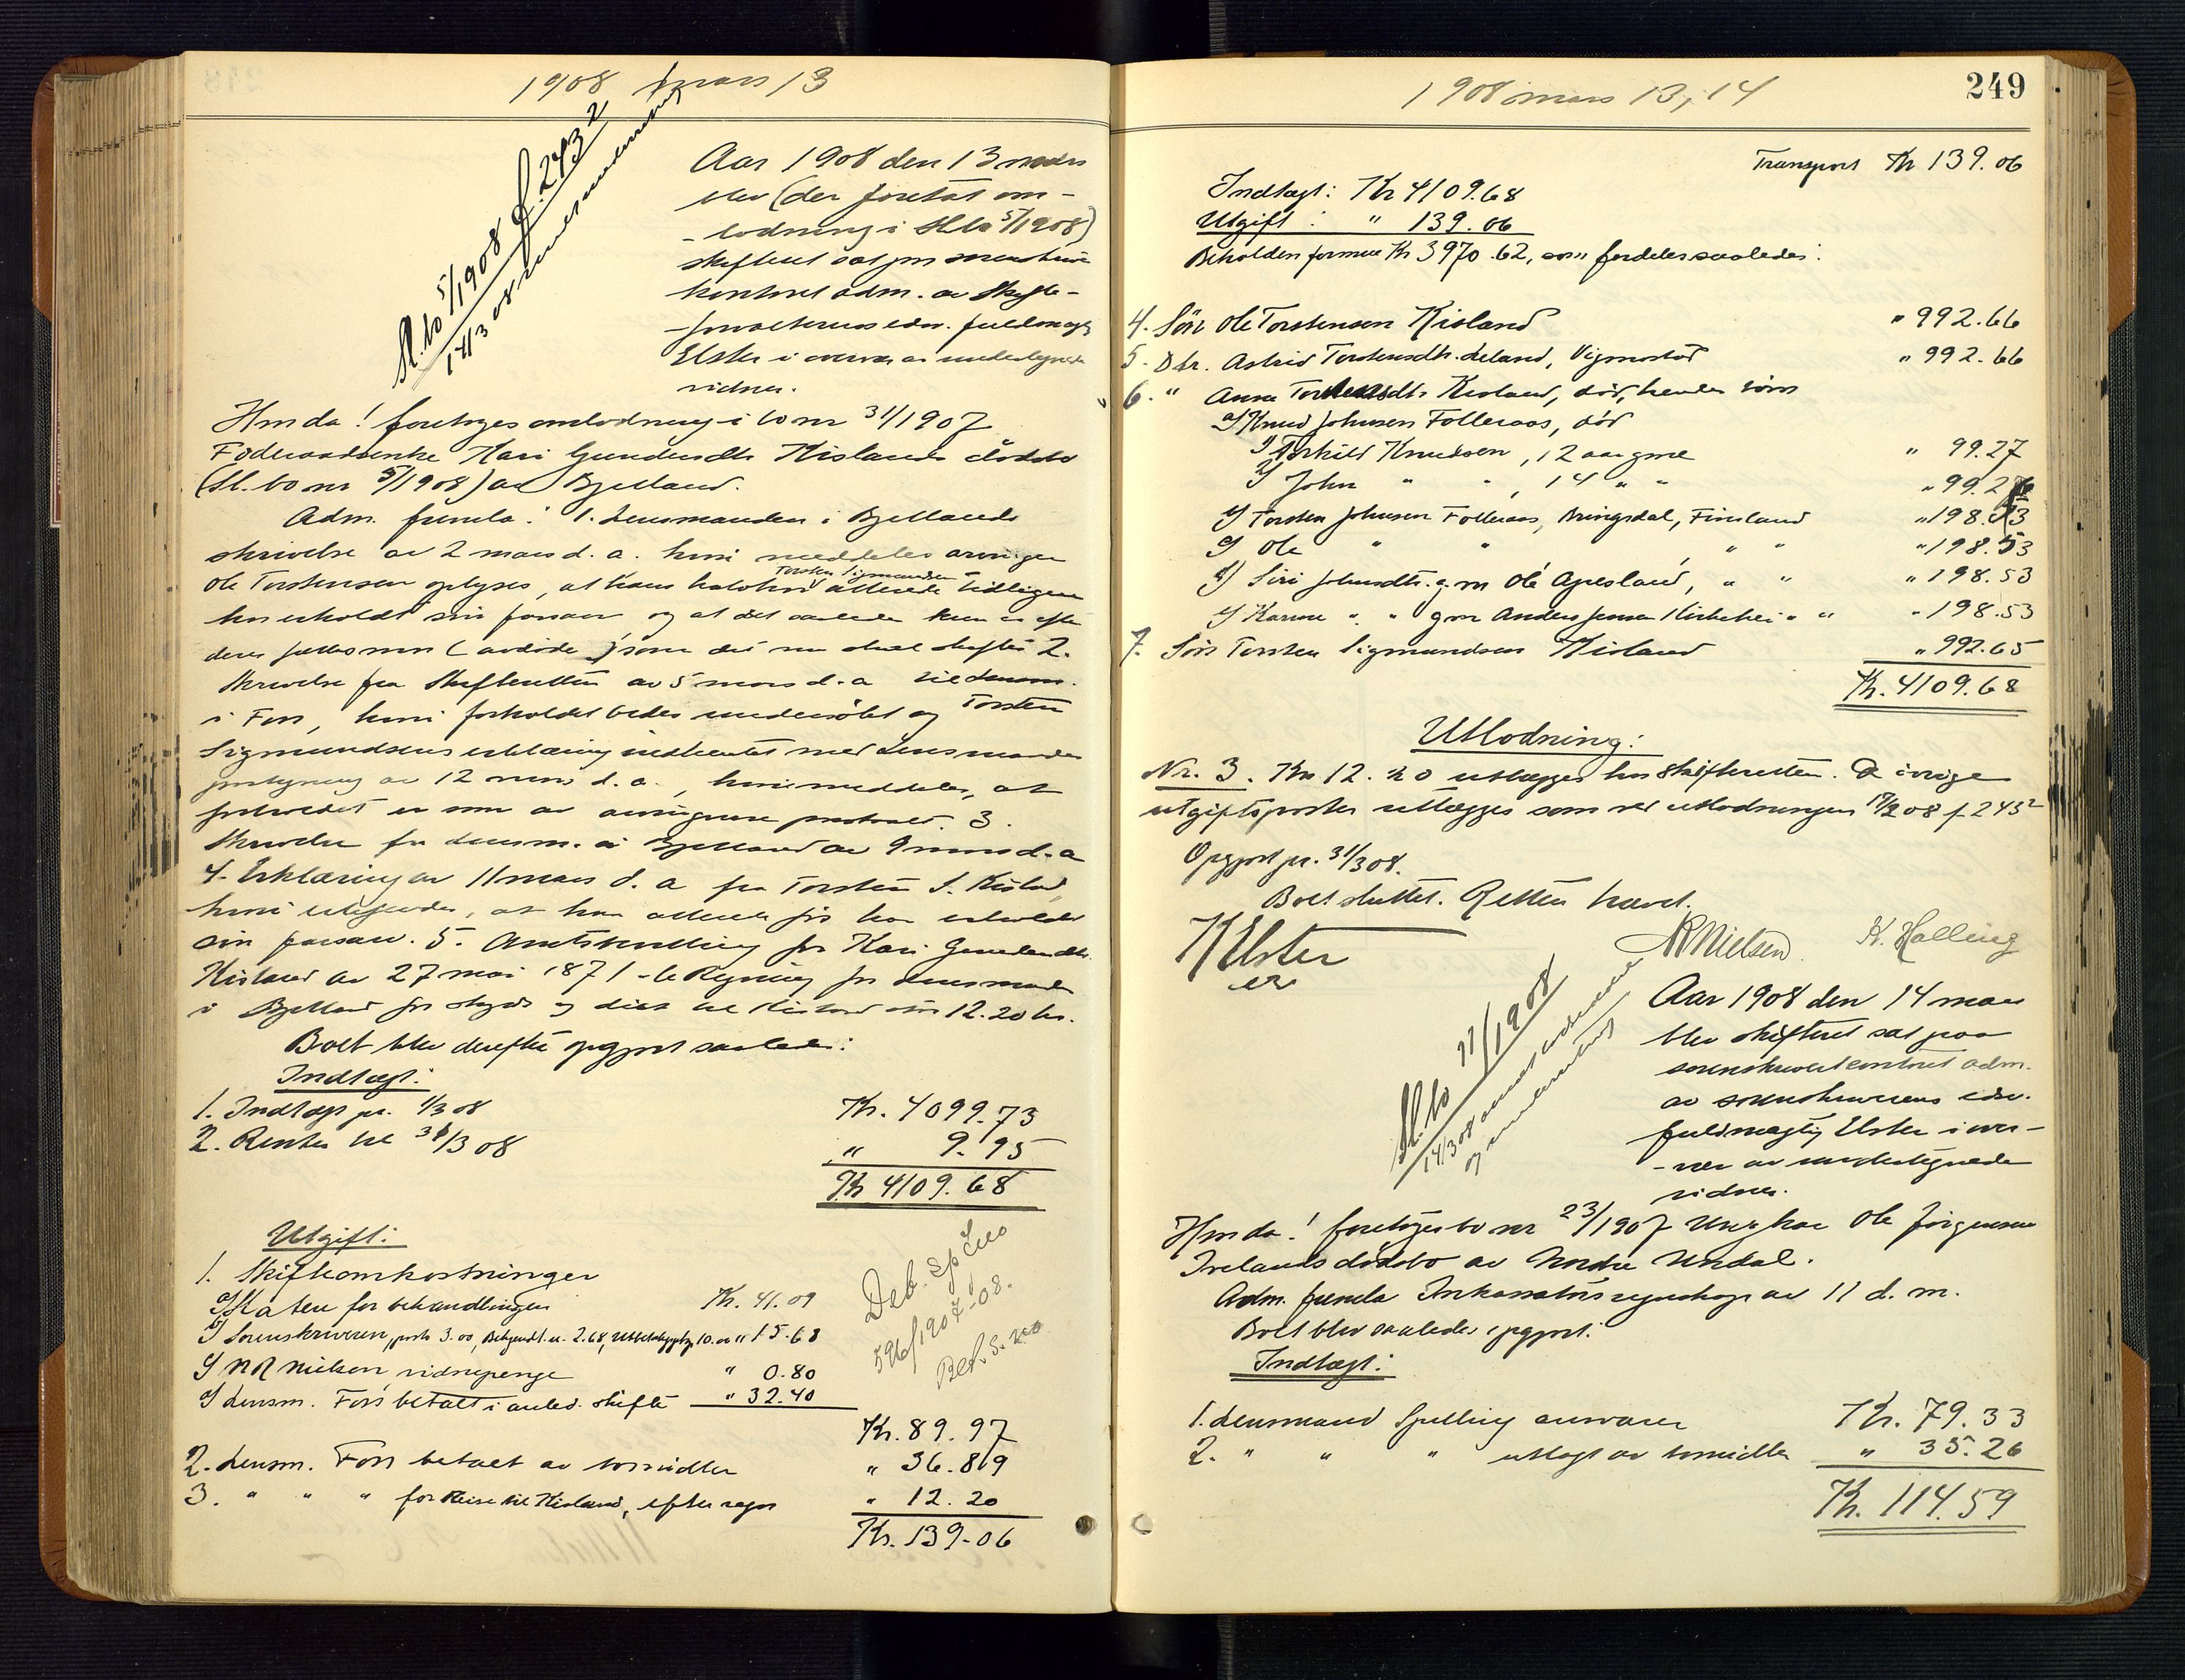 1908 mars 13
Sl. bo 5/1908 f. 243²
14/3 08
Aar 1908 den 13 mars
blev (der foretat om-
-lodning i Sl.bo 5/1908)
skifteret sat paa sorenskriver
kontoret adm. av skifte-
-forvalterens edsv. fuldmægtig
Elster i overvær av undertegnede
vidner.
Hvorda! foretoges omlodning i bo nr 31/1907
Føderaadsenke Kari Gundersdtr Kislands dødsbo
(Sl. bo nr 5/1908) av Bjelland.
Adm. fremla: 1. Lensmanden i Bjellands
skrivelse av 2 mars d. a. hvori meddeles arvingen
Torsten Sigmundsen
Ole Torstensen oplyses, at hans halvbror allerede tidligere
har erholdt sin farsarv og at det saaledes kun er efter
deres fællesmor (avdøde) som det nu skal skiftes 2.
Skrivelse fra Skifteretten av 5 mars d. a til Lensm.
i Foss, hvori forholdet bedes undersøkt og Torsten
Sigmundsens erklæring indhentet med Lensmandens
paategning av 12 mars d. a., hvori meddeles, at
forholdet er som av arvingerne paastaaet. 3.
Skrivelse fra Lensm. i Bjelland av 9 mars d. a
4. Erklæring av 11 mars d. a fra Torsten S. Kisland,
hvori at han allerede før har erholdt
sin farsarv. 5. Avkald for Kari Gundersdtr.
Kisland av 27 mai 1871 - 6 Regning fra Lensmanden
i Bjelland for skyds og diæt til Kisland stor 12.20 kr.
Boet blev derefter opgjort saaledes:
Indtægt:
1. Indtægt pr. 1/3 08 Kr. 4099.73
2. Renter til 31/3 08 " 9.95
Kr 4109.68
Utgift:
1. Skifteomkostninger
a) Staten for behandlingen Kr. 41.09
b) Sorenskriveren, porto 3.00, Bekjendt. u. 2.68, Utbetalingsgebyr 10.00 " 15.68
c) NR Nielsen, vidnepenge " 0.80
d) Lensm. Foss betalt i anled. skifte " 32.40
Kr. 89.97
2. Lensm. Foss betalt av bomidler " 36.89
3. " " " for Reise til Kisland, efter regn " 12.20
Kr. 139.06
596/1907-08.
1908 mars 13, 14
249
Transport Kr 139.06
Indtægt: Kr 4109.68
Utgift: " 139.06
Beholden formue Kr 3970.62, som fordeles saaledes:
4. Søn Ole Torstensen Kisland " 992.66
5. Dtr. Astrid Torstensdtr. Leland, Vigmostad " 992.66
6. " Anna Torstensdtr Kisland, død, hendes børn
a) Knud Johnsen Folleraas, død
1) Torkild Knudsen, 12 aar gml " 99.27
2) John " " , 14 " " " 99.26
b) Torsten Johnsen Folleraas, Bringsdal, Finsland " 198.53
c) Ole " " , " " " 198.53
d) Siri Johnsdtr. g.m Ole Apesland, " " " 198.53
e) Karine " " gm Anders Jensen Kirkehei " " " 198.53
7. Søn Torsten Sigmundsen Kisland " 992.65
Kr. 4109.68
Utlodning:
Nr. 3. Kr 12.20 utlægges hos Skifteretten. De øvrige
utgiftsposter utlægges som ved utlodningen 17/2 08 f 243²
Opgjort pr. 31/3 08.
Boet sluttet. Retten hævet.
KElster
NRNielsen K. Halling
Sl. bo 11/1908
14/3 08
Aar 1908 den 14 mars
blev skifteret sat paa
sorenskriverkontoret adm.
av sorenskriverens edsv.
fuldmægtig Elster i over-
-vær av undertegnede
vidner.
Hvorda! foretoges bo nr 23/1907 Ungkar Ole Jørgensen
Ivelands dødsbo av Nordre Undal.
Adm. fremla Inkassationsregnskap av 11 d. m.
Boet blev saaledes opgjort:
Indtægt:
1. Lensmand Spilling ansvarer Kr. 79.33
2. " " " utlagt av bomidler " 35.26
Kr. 114.59